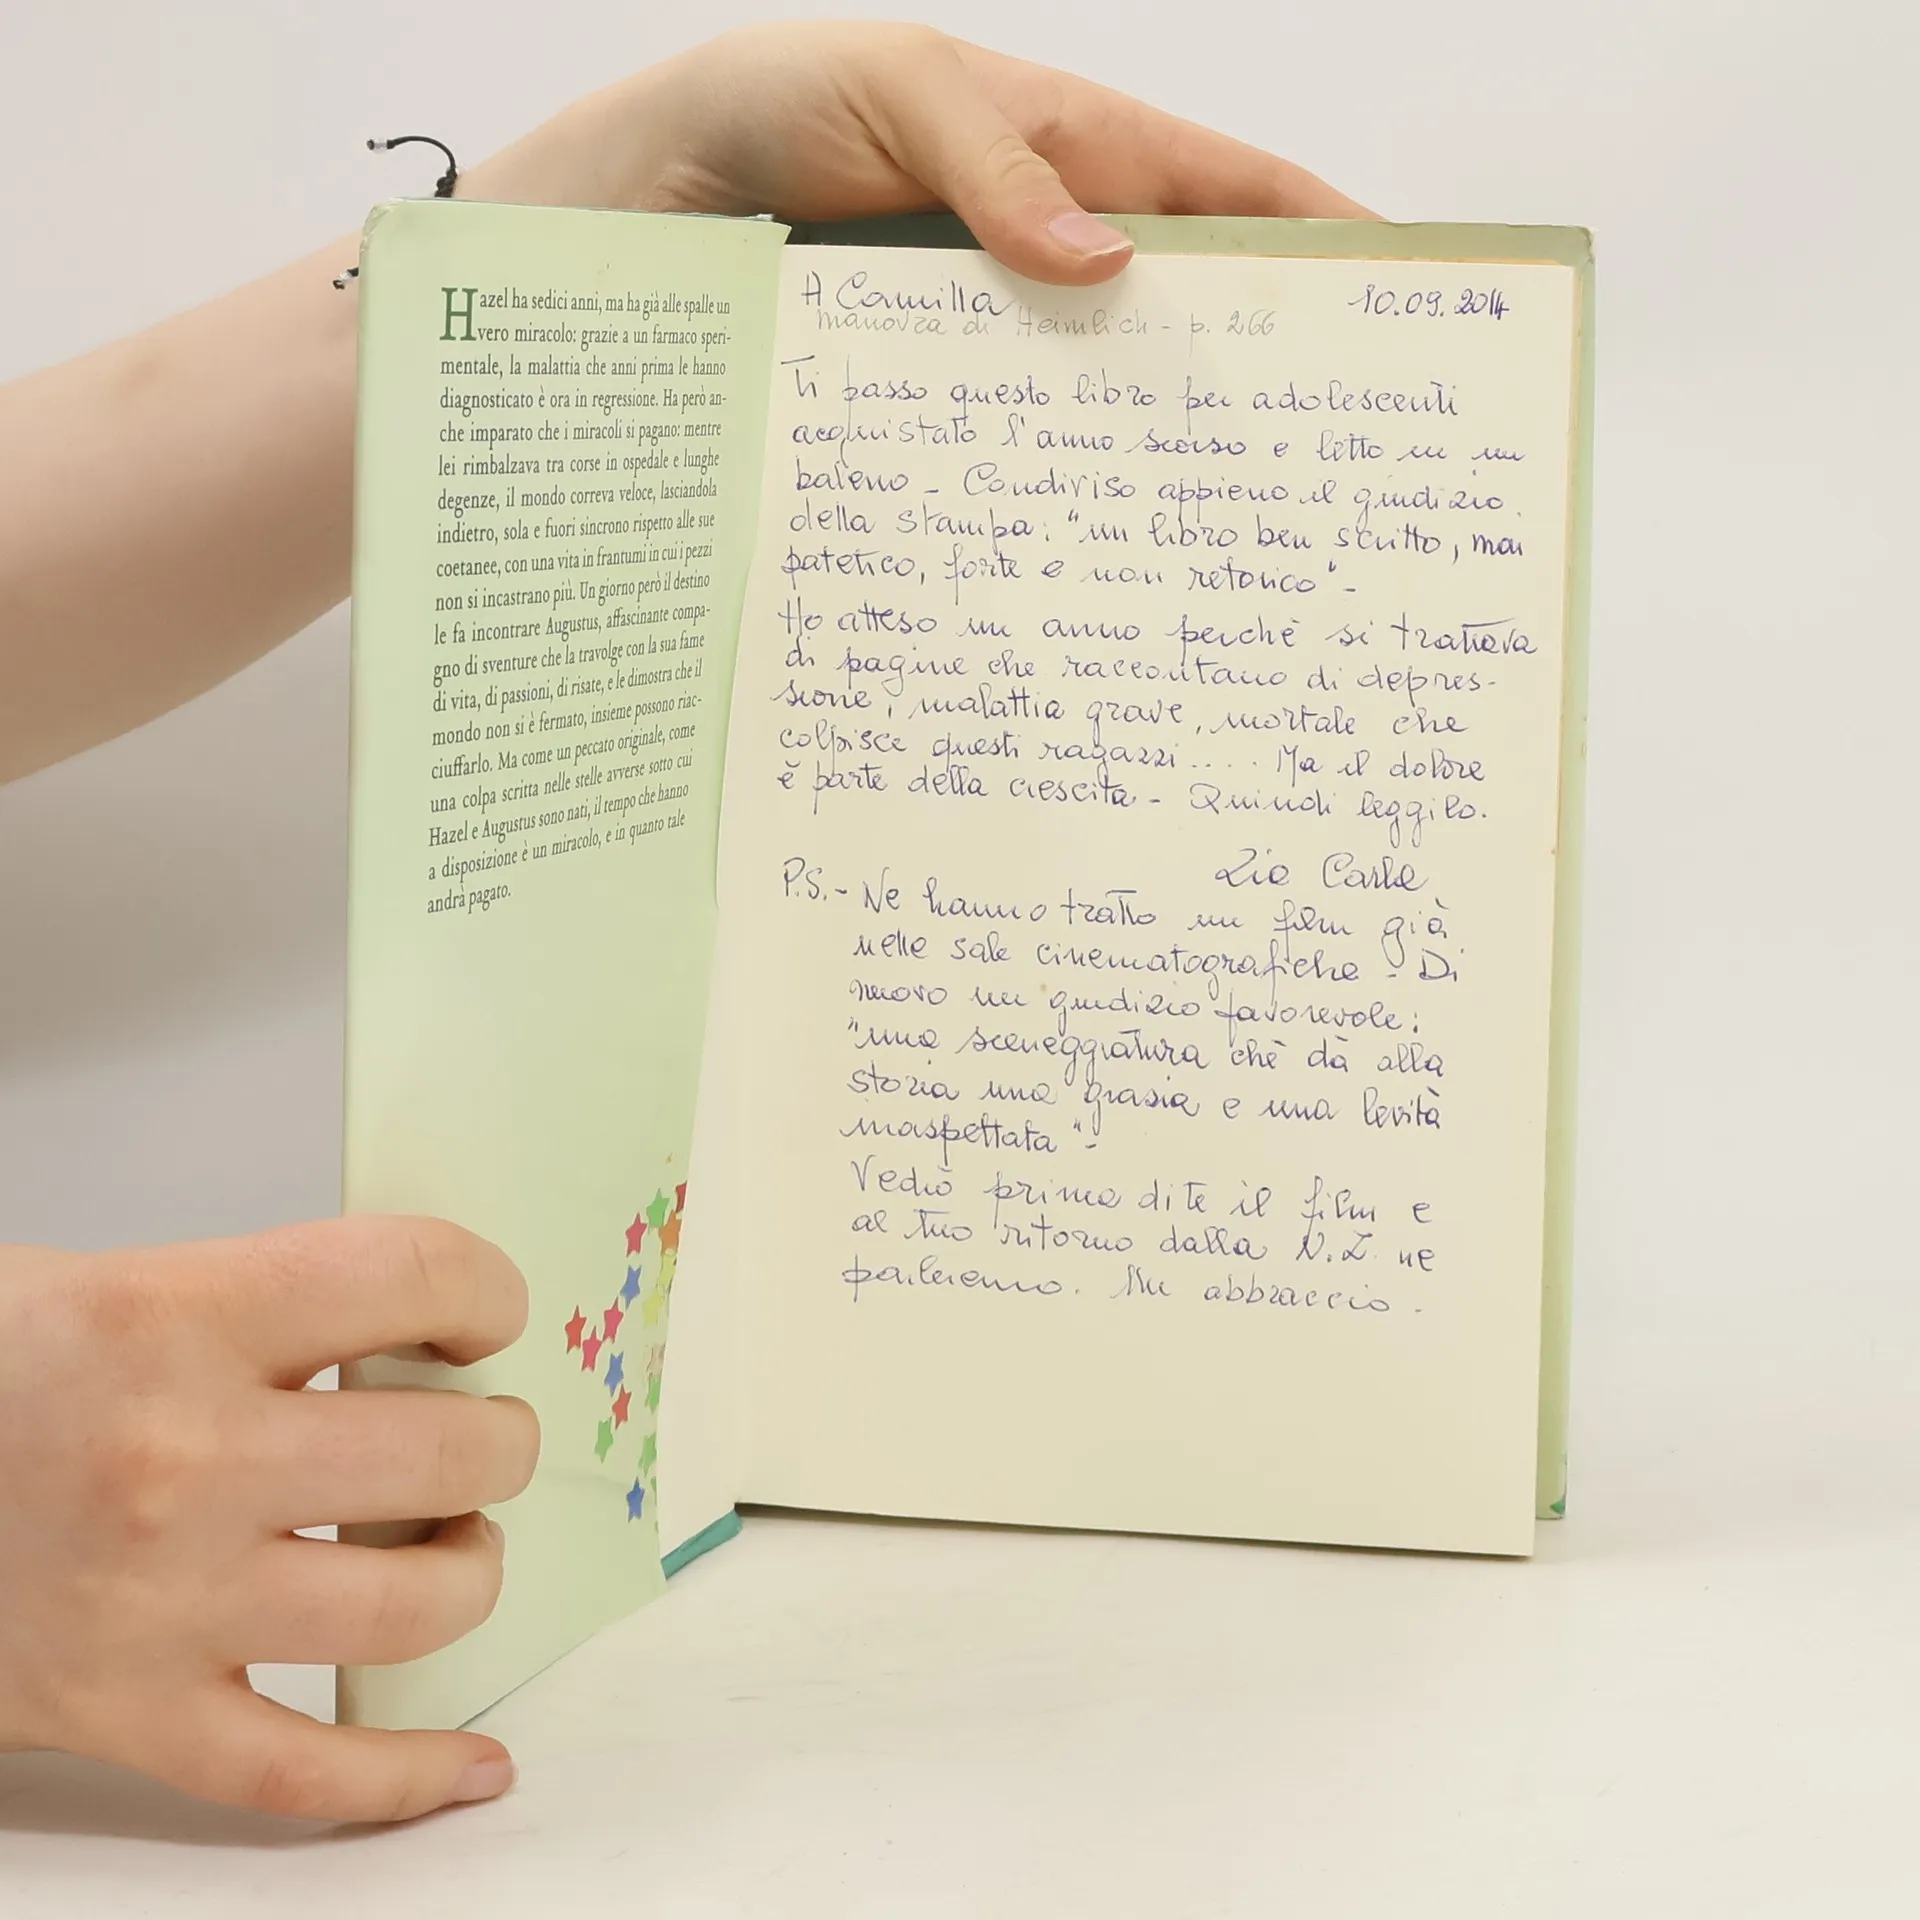 Hazel ha sedici anni, ma ha già alle spalle un
vero miracolo: grazie a un farmaco speri-
mentale, la malattia che anni prima le hanno
diagnosticato è ora in regressione. Ha però an-
che imparato che i miracoli si pagano: mentre
lei rimbalzava tra corse in ospedale e lunghe
degenze, il mondo correva veloce, lasciandola
indietro, sola e fuori sincrono rispetto alle sue
coetanee, con una vita in frantumi in cui i pezzi
non si incastrano più. Un giorno però il destino
le fa incontrare Augustus, affascinante compa-
gno di sventure che la travolge con la sua fame
di vita, di passioni, di risate, e le dimostra che il
mondo non si è fermato, insieme possono riac-
ciuffarlo. Ma come un peccato originale, come
una colpa scritta nelle stelle avverse sotto cui
Hazel e Augustus sono nati, il tempo che hanno
a disposizione è un miracolo, e in quanto tale
andrà pagato.
A Camilla 10.09.2014
manovra di Heimlich - p. 266
Ti passo questo libro per adolescenti
acquistato l'anno scorso e letto in un
baleno - Condiviso appieno il giudizio
della stampa: "un libro ben scritto, mai
patetico, forte e non retorico" -
Ho atteso un anno perchè si trattava
di pagine che raccontano di depres-
sione, malattia grave, mortale che
colpisce questi ragazzi .... Ma il dolore
è parte della crescita - Quindi leggilo.
Zia Carla
P.S. - Ne hanno tratto un film già
nelle sale cinematografiche - Di
nuovo un giudizio favorevole:
"una sceneggiatura chè dà alla
storia una grazia e una levità
inaspettata" -
Vedrò prima di te il film e
al tuo ritorno dalla N.Z. ne
parleremo. Un abbraccio.